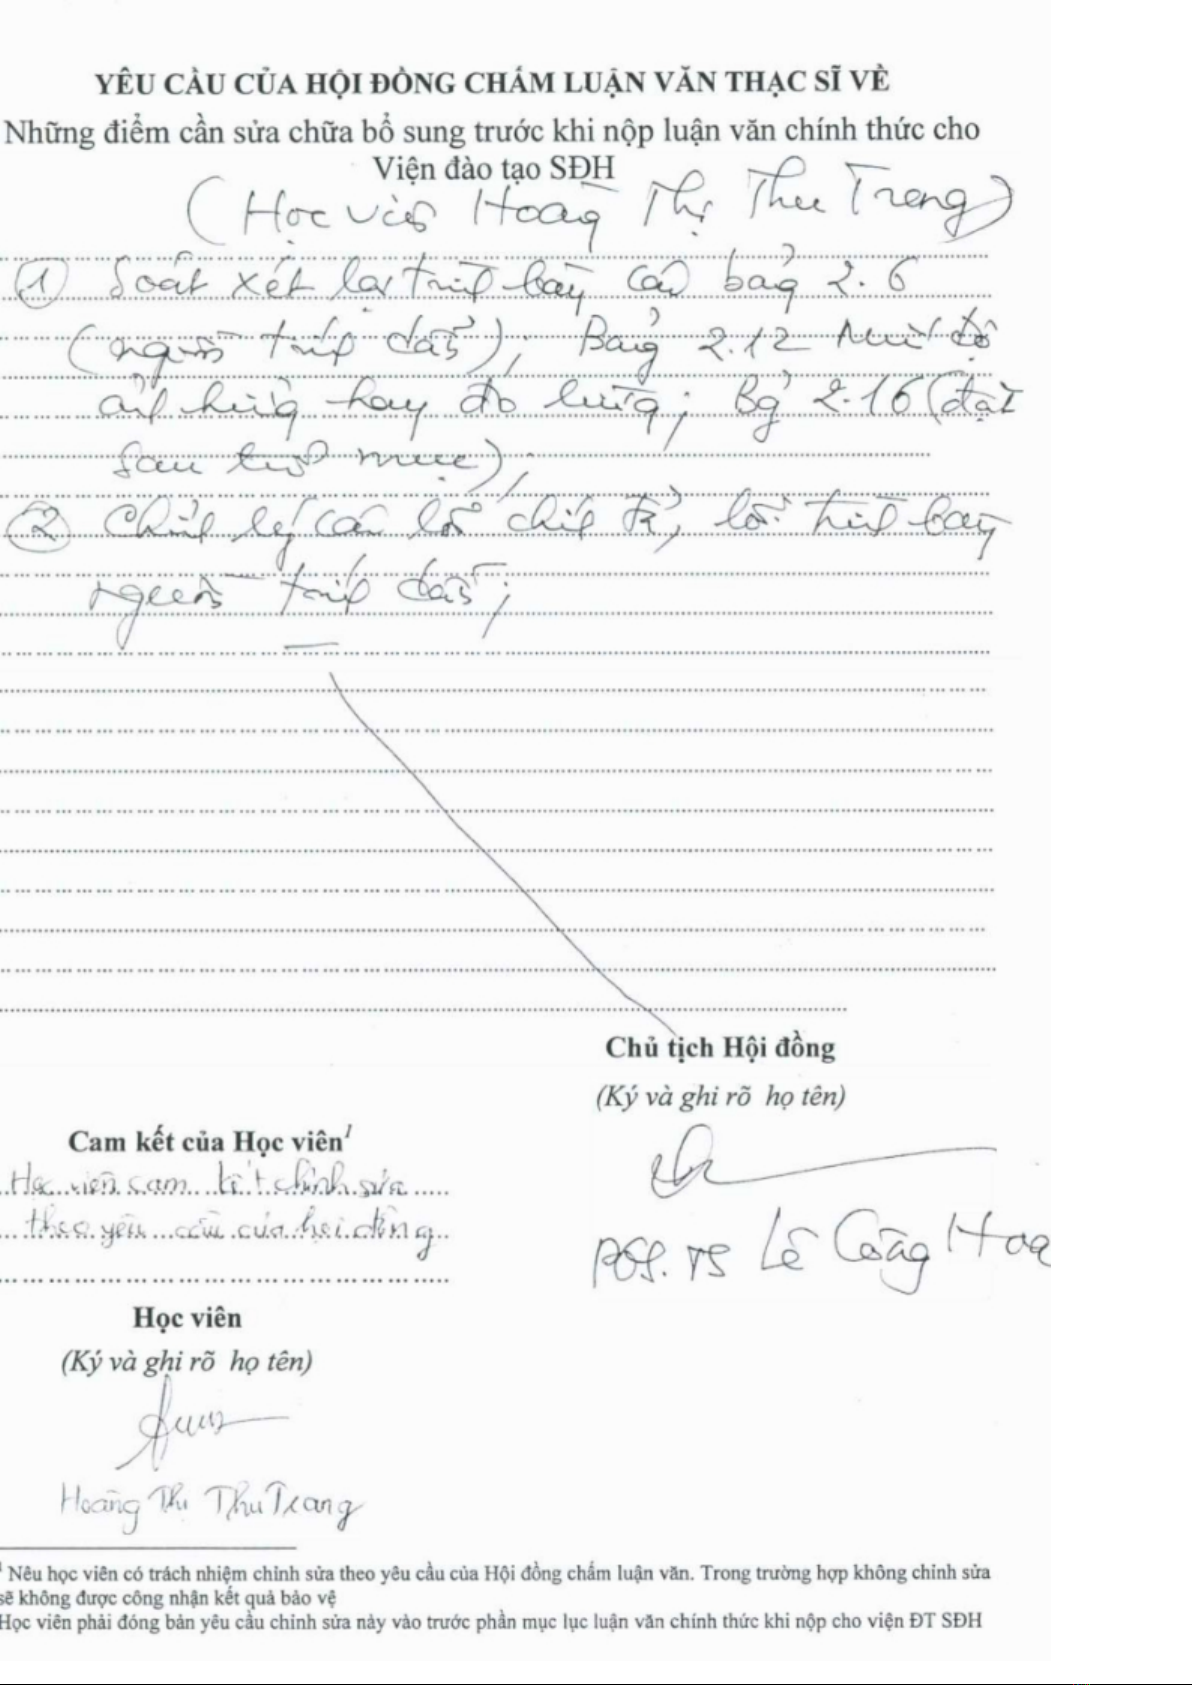 YÊU CẦU CỦA HỘI ĐỒNG CHẤM LUẬN VĂN THẠC SĨ VỀ
Những điểm cần sửa chữa bổ sung trước khi nộp luận văn chính thức cho
Viện đào tạo SĐH
(Học viên Hoàng Thị Thu Trang)
① Soát xét lại trình bày các bảng 2.6
(nguồn trích dẫn); Bảng 2.12 Mức độ
ảnh hưởng hay đo lường; Bảng 2.16 (đặt
sau mục);
② Chỉnh lý các lỗi chính tả, lỗi trình bày
nguồn trích dẫn;
Chủ tịch Hội đồng
(Ký và ghi rõ họ tên)
Cam kết của Học viên¹
Học viên cam kết chỉnh sửa
theo yêu cầu của hội đồng
PGS. TS Lê Công Hoa
Học viên
(Ký và ghi rõ họ tên)
Hoàng Thị Thu Trang
¹ Nêu học viên có trách nhiệm chỉnh sửa theo yêu cầu của Hội đồng chấm luận văn. Trong trường hợp không chỉnh sửa
sẽ không được công nhận kết quả bảo vệ
Học viên phải đóng bản yêu cầu chỉnh sửa này vào trước phần mục lục luận văn chính thức khi nộp cho viện ĐT SĐH